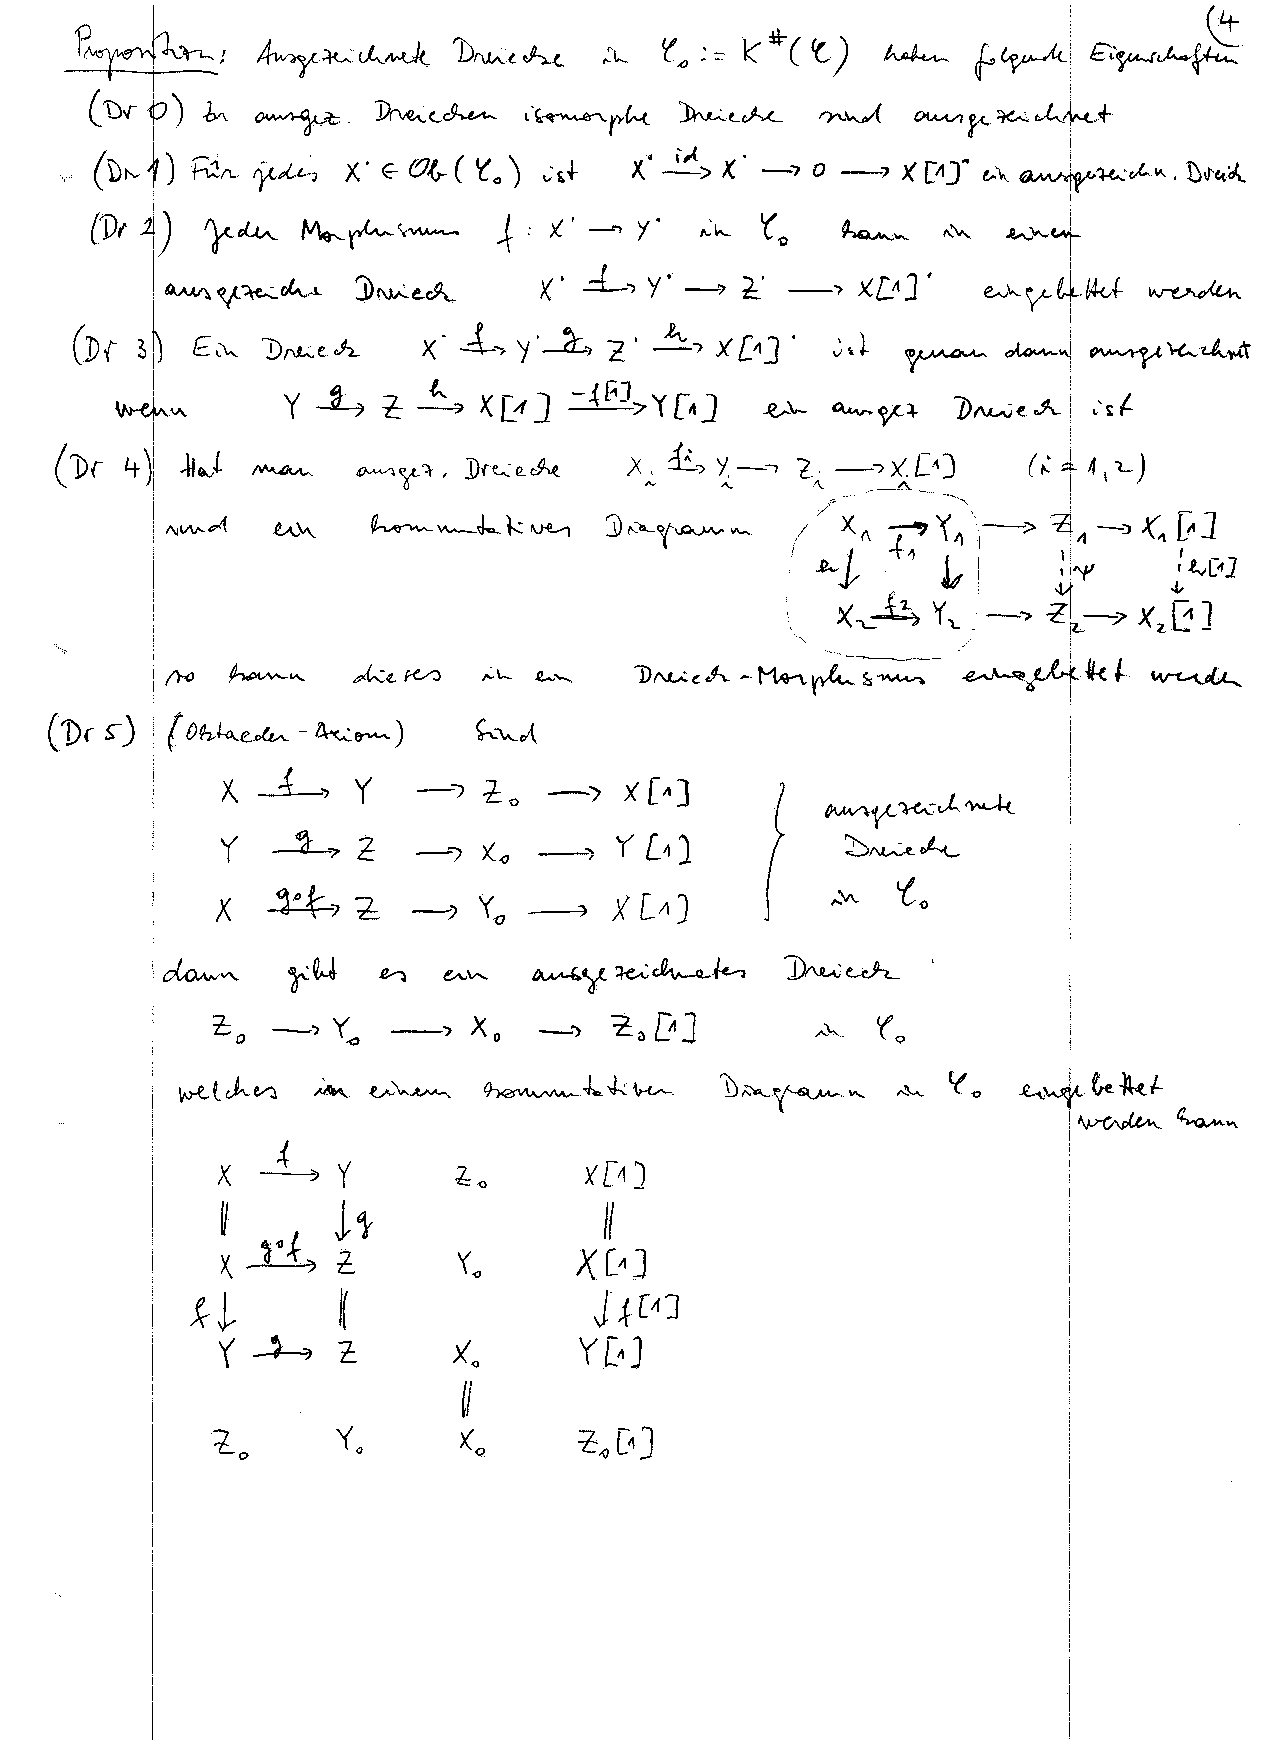 (4
Proposition: Ausgezeichnete Dreiecke in 𝒞₀ := K^#(𝒞) haben folgende Eigenschaften
(Dr 0) Zu ausgez. Dreiecken isomorphe Dreiecke sind ausgezeichnet
(Dr 1) Für jedes X˙ ∈ Ob(𝒞₀) ist X˙ —id→ X˙ → 0 → X[1]˙ ein ausgezeichn. Dreieck
(Dr 2) Jeder Morphismus f : X˙ → Y˙ in 𝒞₀ kann in einen
ausgezeiche Dreieck X˙ —f→ Y˙ → Z˙ → X[1]˙ eingebettet werden
(Dr 3) Ein Dreieck X˙ —f→ Y˙ —g→ Z˙ —h→ X[1]˙ ist genau dann ausgezeichnet
wenn Y —g→ Z —h→ X[1] —-f[1]→ Y[1] ein ausgez Dreieck ist
(Dr 4) Hat man ausgez. Dreiecke X_i —f_i→ Y_i → Z_i → X_i[1] (i = 1,2)
und ein kommutatives Diagramm X₁ → Y₁ → Z₁ → X₁[1]
f₁
h↓ ↓ ↓ψ ↓h[1]
X₂ —f₂→ Y₂ → Z₂ → X₂[1]
so kann dieses in ein Dreieck-Morphismus eingebettet werden
(Dr 5) (Oktaeder-Axiom) Sind
X —f→ Y → Z₀ → X[1]
Y —g→ Z → X₀ → Y[1]
X —g∘f→ Z → Y₀ → X[1]
} ausgezeichnete
Dreiecke
in 𝒞₀
dann gibt es ein ausgezeichnetes Dreieck
Z₀ → Y₀ → X₀ → Z₀[1] in 𝒞₀
welches in einem kommutativen Diagramm in 𝒞₀ eingebettet
werden kann
X —f→ Y Z₀ X[1]
‖ ↓g ‖
X —g∘f→ Z Y₀ X[1]
f↓ ‖ ↓f[1]
Y —g→ Z X₀ Y[1]
‖
Z₀ Y₀ X₀ Z₀[1]